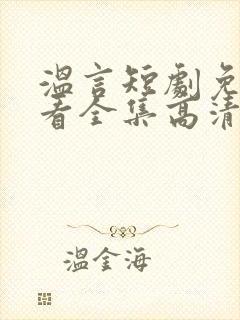 温言短劇免
看全集高清
溫金海